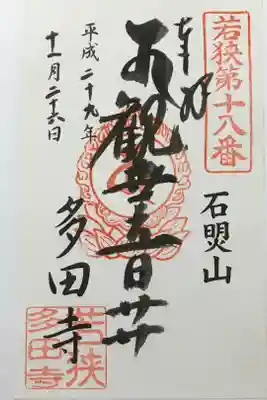 若狭第十八番
奉拝
石
山
観世音𦬇
多田寺
平成二十九年
十一月二十六日
若狭
多田寺